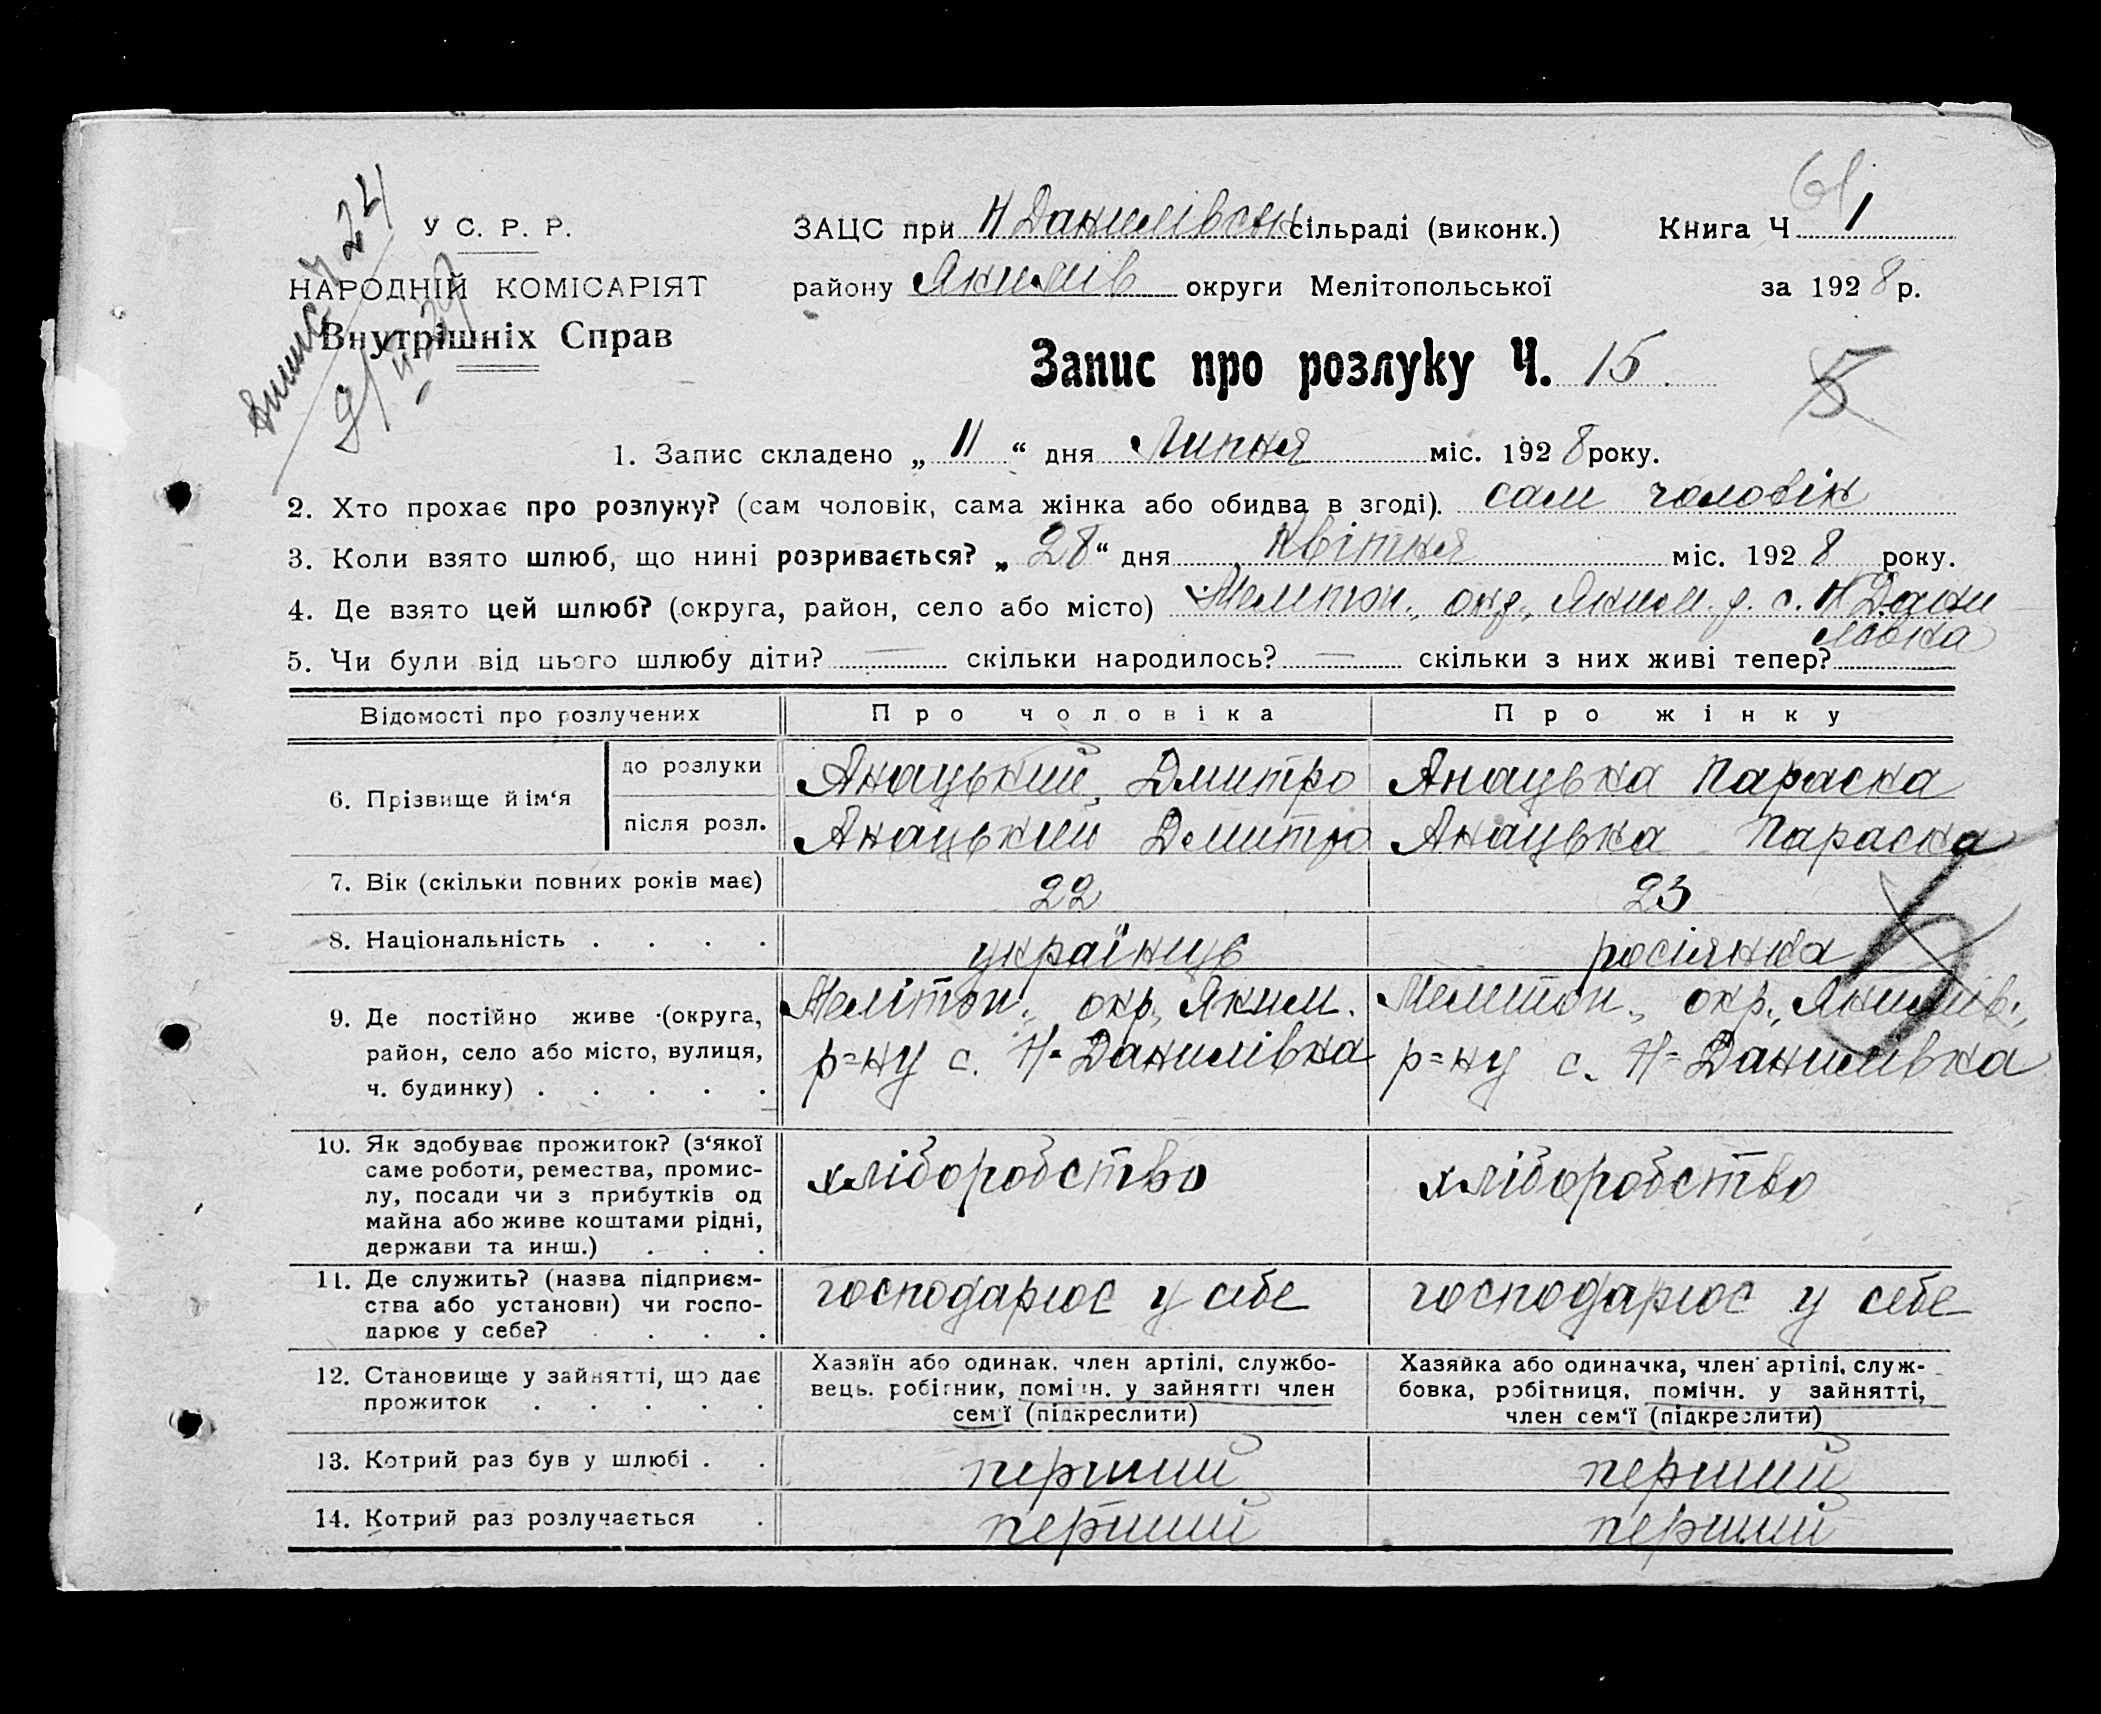 61
У С. Р. Р.
ЗАЦС при Н Данилівськ сільраді (виконк.) Книга Ч 1
НАРОДНІЙ КОМІСАРІЯТ
району Якимів округи Мелітопольської за 1928 р.
Внутрішніх Справ
Запис про розлуку Ч. 15
5
1. Запис складено „ 11 “ дня Липня міс. 1928 року.
2. Хто прохає про розлуку? (сам чоловік, сама жінка або обидва в згоді). сам чоловік
3. Коли взято шлюб, що нині розривається? „ 28 “ дня Квітня міс. 1928 року.
4. Де взято цей шлюб? (округа, район, село або місто) Мелітоп., окр., Яким. р. с. Н Дани
лівка
5. Чи були від цього шлюбу діти? — скільки народилось? — скільки з них живі тепер?
Відомості про розлучених Про чоловіка Про жінку
6. Прізвище й ім‘я
до розлуки Анацький, Дмитро Анацька Параска
після розл. Анацький Дмитро Анацька Параска
7. Вік (скільки повних років має) 22 23
8. Національність . . . . українць росіянка
9. Де постійно живе (округа, Мелітоп., окр., Яким. Мелитоп., окр., Якимів.,
район, село або місто, вулиця, р=ну с. Н=Данилівка р=ну с. Н=Данилівка
ч. будинку) . . . . .
10. Як здобуває прожиток? (з‘якої
саме роботи, ремества, промис- хліборобство хліборобство
лу, посади чи з прибутків од
майна або живе коштами рідні,
держави та инш.) . . .
11. Де служить? (назва підприєм- господарює у себе господарює у себе
ства або установи) чи госпо-
дарює у себе? . . . .
12. Становище у зайнятті, що дає
прожиток . . . . .
Хазяїн або одинак. член артілі, службо-
вець. робітник, помічн. у зайнятті член
сем‘ї (підкреслити)
Хазяйка або одиначка, член артілі, служ-
бовка, робітниця, помічн. у зайнятті,
член сем‘ї (підкреслити)
13. Котрий раз був у шлюбі . . перший перший
14. Котрий раз розлучається . перший перший